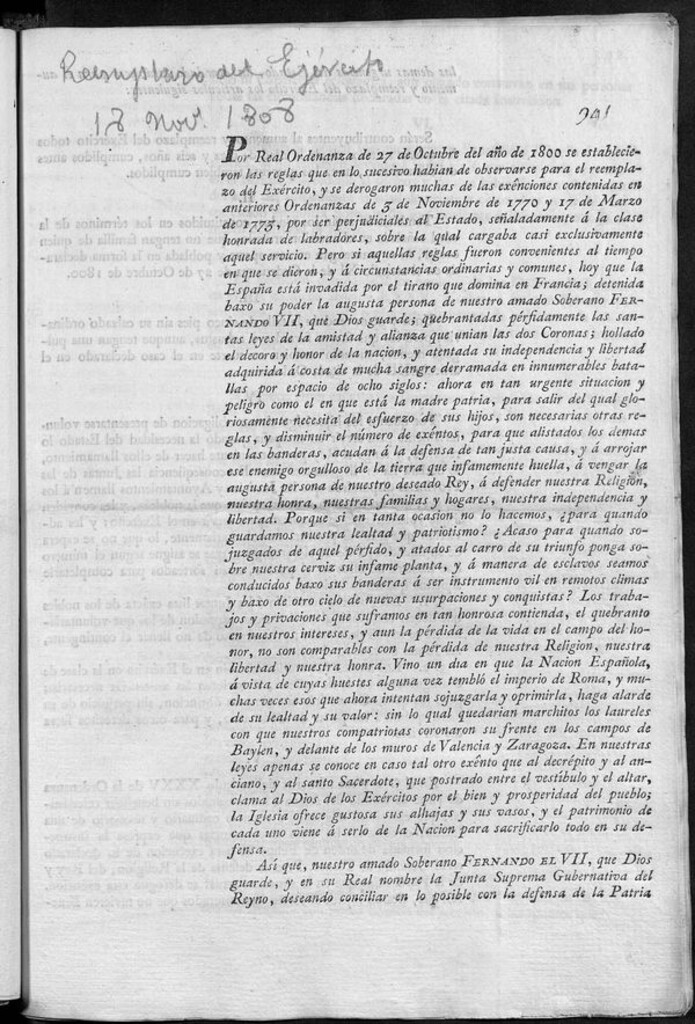 Reemplazo del Ejército
18 Nov. 1808
941
Por Real Ordenanza de 27 de Octubre del año de 1800 se establecie-
ron las reglas que en lo sucesivo habian de observarse para el reempla-
zo del Exército, y se derogaron muchas de las exênciones contenidas en
anteriores Ordenanzas de 3 de Noviembre de 1770 y 17 de Marzo
de 1773, por ser perjudiciales al Estado, señaladamente á la clase
honrada de labradores, sobre la qual cargaba casi exclusivamente
aquel servicio. Pero si aquellas reglas fueron convenientes al tiempo
en que se dieron, y á circunstancias ordinarias y comunes, hoy que la
España está invadida por el tirano que domina en Francia; detenida
baxo su poder la augusta persona de nuestro amado Soberano FER-
NANDO VII, que Dios guarde; quebrantadas pérfidamente las san-
tas leyes de la amistad y alianza que unian las dos Coronas; hollado
el decoro y honor de la nacion, y atentada su independencia y libertad
adquirida á costa de mucha sangre derramada en innumerables bata-
llas por espacio de ocho siglos: ahora en tan urgente situacion y
peligro como el en que está la madre patria, para salir del qual glo-
riosamente necesita del esfuerzo de sus hijos, son necesarias otras re-
glas, y disminuir el número de exêntos, para que alistados los demas
en las banderas, acudan á la defensa de tan justa causa, y á arrojar
ese enemigo orgulloso de la tierra que infamemente huella, á vengar la
augusta persona de nuestro deseado Rey, á defender nuestra Religion,
nuestra honra, nuestras familias y hogares, nuestra independencia y
libertad. Porque si en tanta ocasion no lo hacemos, ¿para quando
guardamos nuestra lealtad y patriotismo? ¿Acaso para quando so-
juzgados de aquel pérfido, y atados al carro de su triunfo ponga so-
bre nuestra cerviz su infame planta, y á manera de esclavos seamos
conducidos baxo sus banderas á ser instrumento vil en remotos climas
y baxo de otro cielo de nuevas usurpaciones y conquistas? Los traba-
jos y privaciones que suframos en tan honrosa contienda, el quebranto
en nuestros intereses, y aun la pérdida de la vida en el campo del ho-
nor, no son comparables con la pérdida de nuestra Religion, nuestra
libertad y nuestra honra. Vino un dia en que la Nacion Española,
á vista de cuyas huestes alguna vez tembló el imperio de Roma, y mu-
chas veces esos que ahora intentan sojuzgarla y oprimirla, haga alarde
de su lealtad y su valor: sin lo qual quedarian marchitos los laureles
con que nuestros compatriotas coronaron su frente en los campos de
Baylen, y delante de los muros de Valencia y Zaragoza. En nuestras
leyes apenas se conoce en caso tal otro exênto que al decrépito y al an-
ciano, y al santo Sacerdote, que postrado entre el vestíbulo y el altar,
clama al Dios de los Exércitos por el bien y prosperidad del pueblo;
la Iglesia ofrece gustosa sus alhajas y sus vasos, y el patrimonio de
cada uno viene á serlo de la Nacion para sacrificarlo todo en su de-
fensa.
Así que, nuestro amado Soberano FERNANDO EL VII, que Dios
guarde, y en su Real nombre la Junta Suprema Gubernativa del
Reyno, deseando conciliar en lo posible con la defensa de la Patria